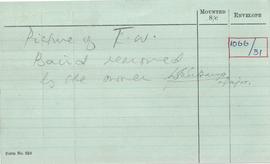 MOUNTED S/C
ENVELOPE
Picture of T. W.
Baird removed
by the owner
Major.
1066/31
Form No. 323